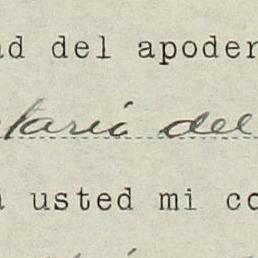 ad del apoder
etario del
a usted mi co